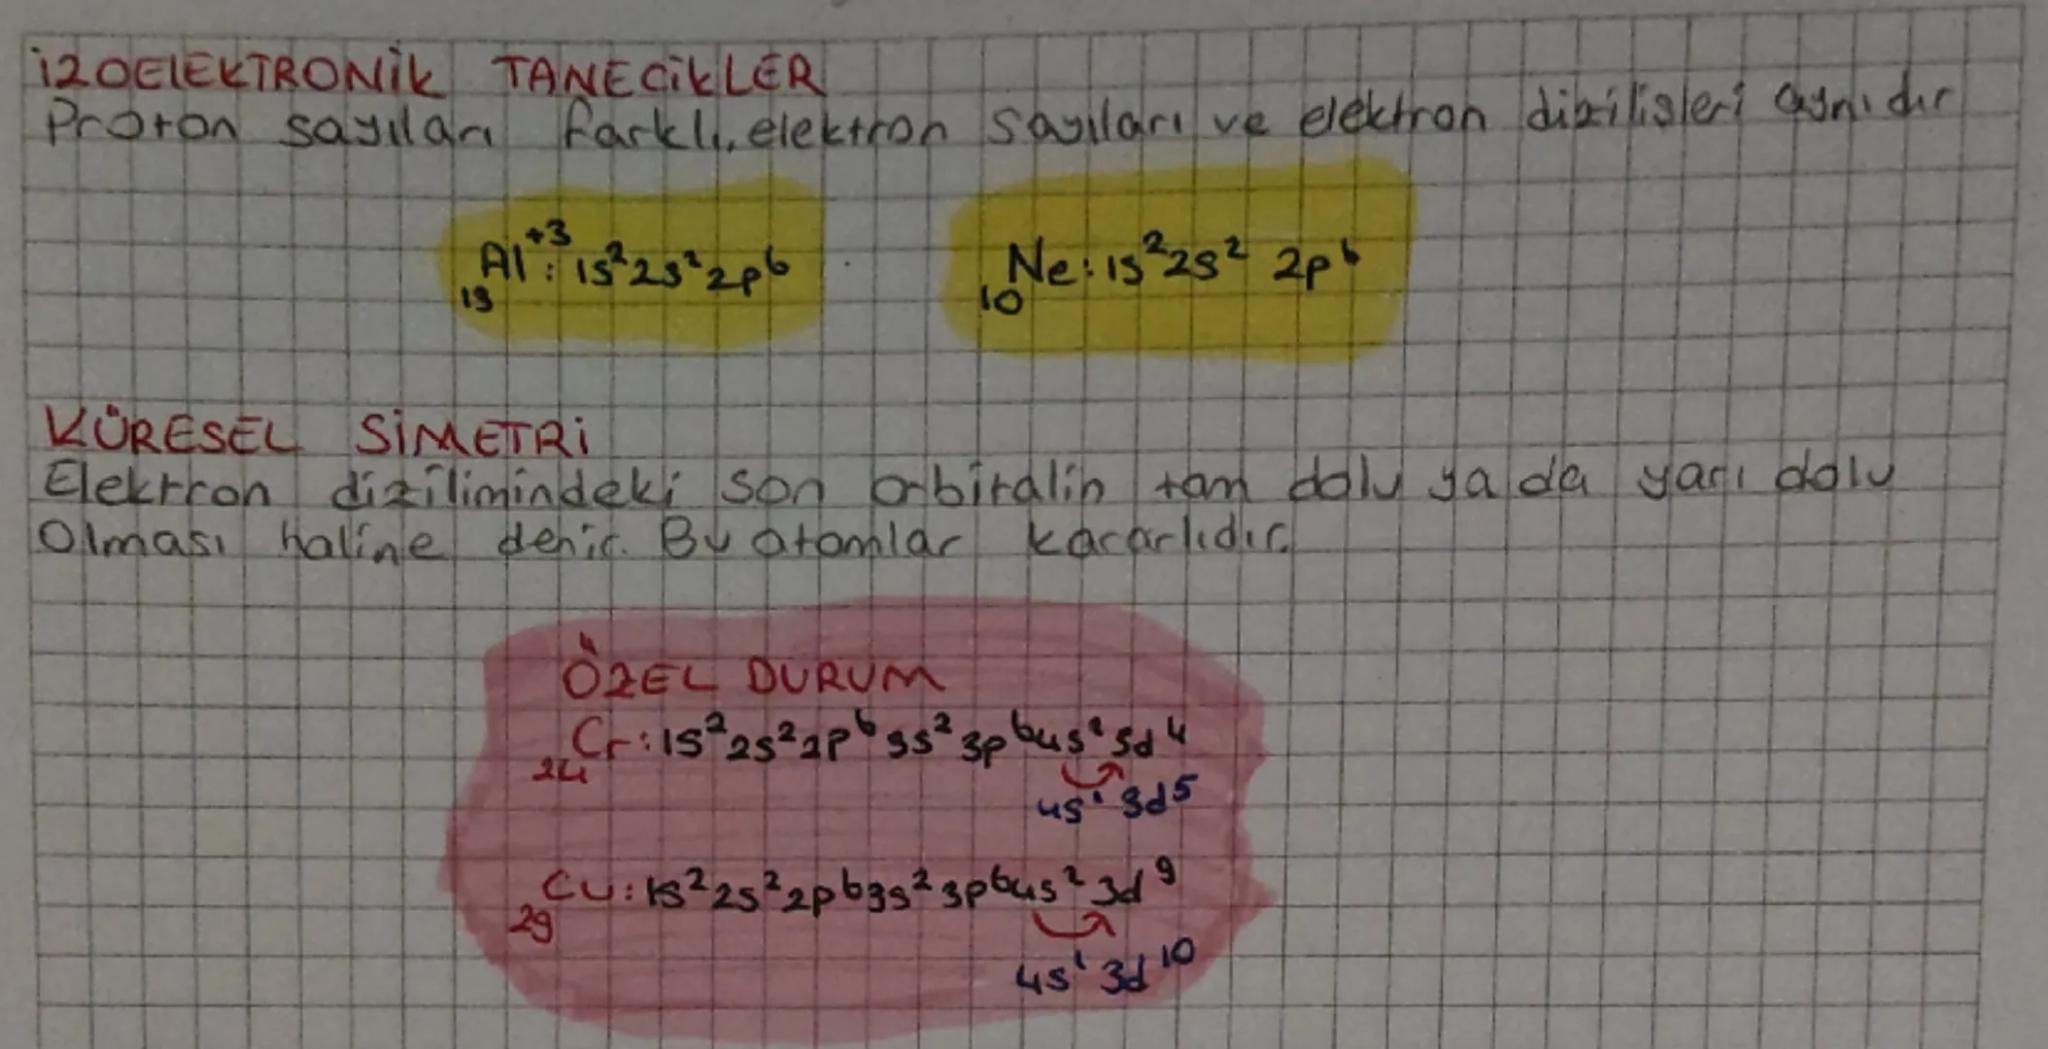 İZOELEKTRONİK TANECİKLER
Proton sayıları farklı, elektron sayıları ve elektron dizilişleri aynıdır
₁₃Al⁺³: 1s² 2s² 2p⁶
₁₀Ne: 1s² 2s² 2p⁶
KÜRESEL SİMETRİ
Elektron dizilimindeki son orbitalin tam dolu ya da yarı dolu
Olması haline denir. Bu atomlar kararlıdır.
ÖZEL DURUM
₂₄Cr: 1s² 2s² 2p⁶ 3s² 3p⁶ 4s² 3d⁴
4s¹ 3d⁵
₂₉Cu: 1s² 2s² 2p⁶ 3s² 3p⁶ 4s² 3d⁹
4s¹ 3d¹⁰